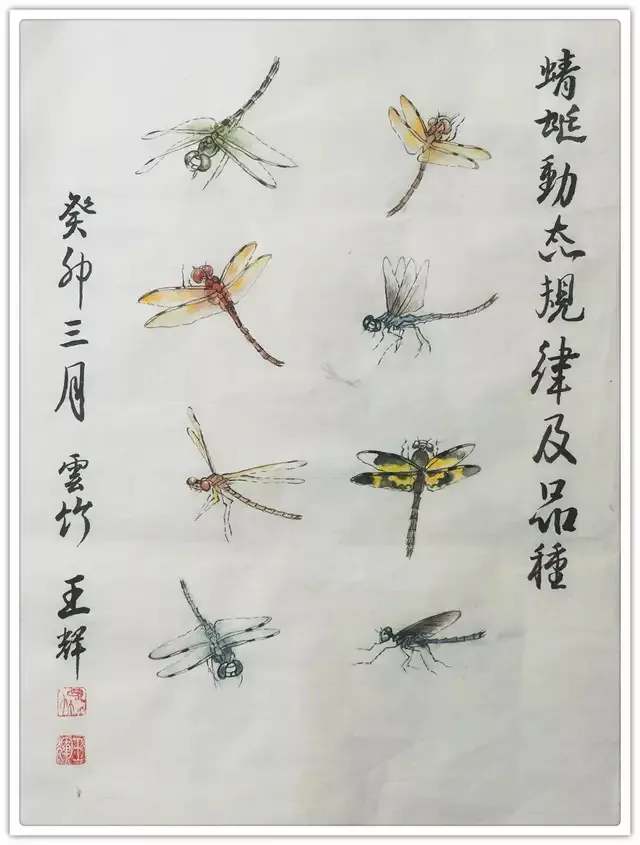 蜻蜓動态規律及品種
癸卯三月 雲竹 王輝